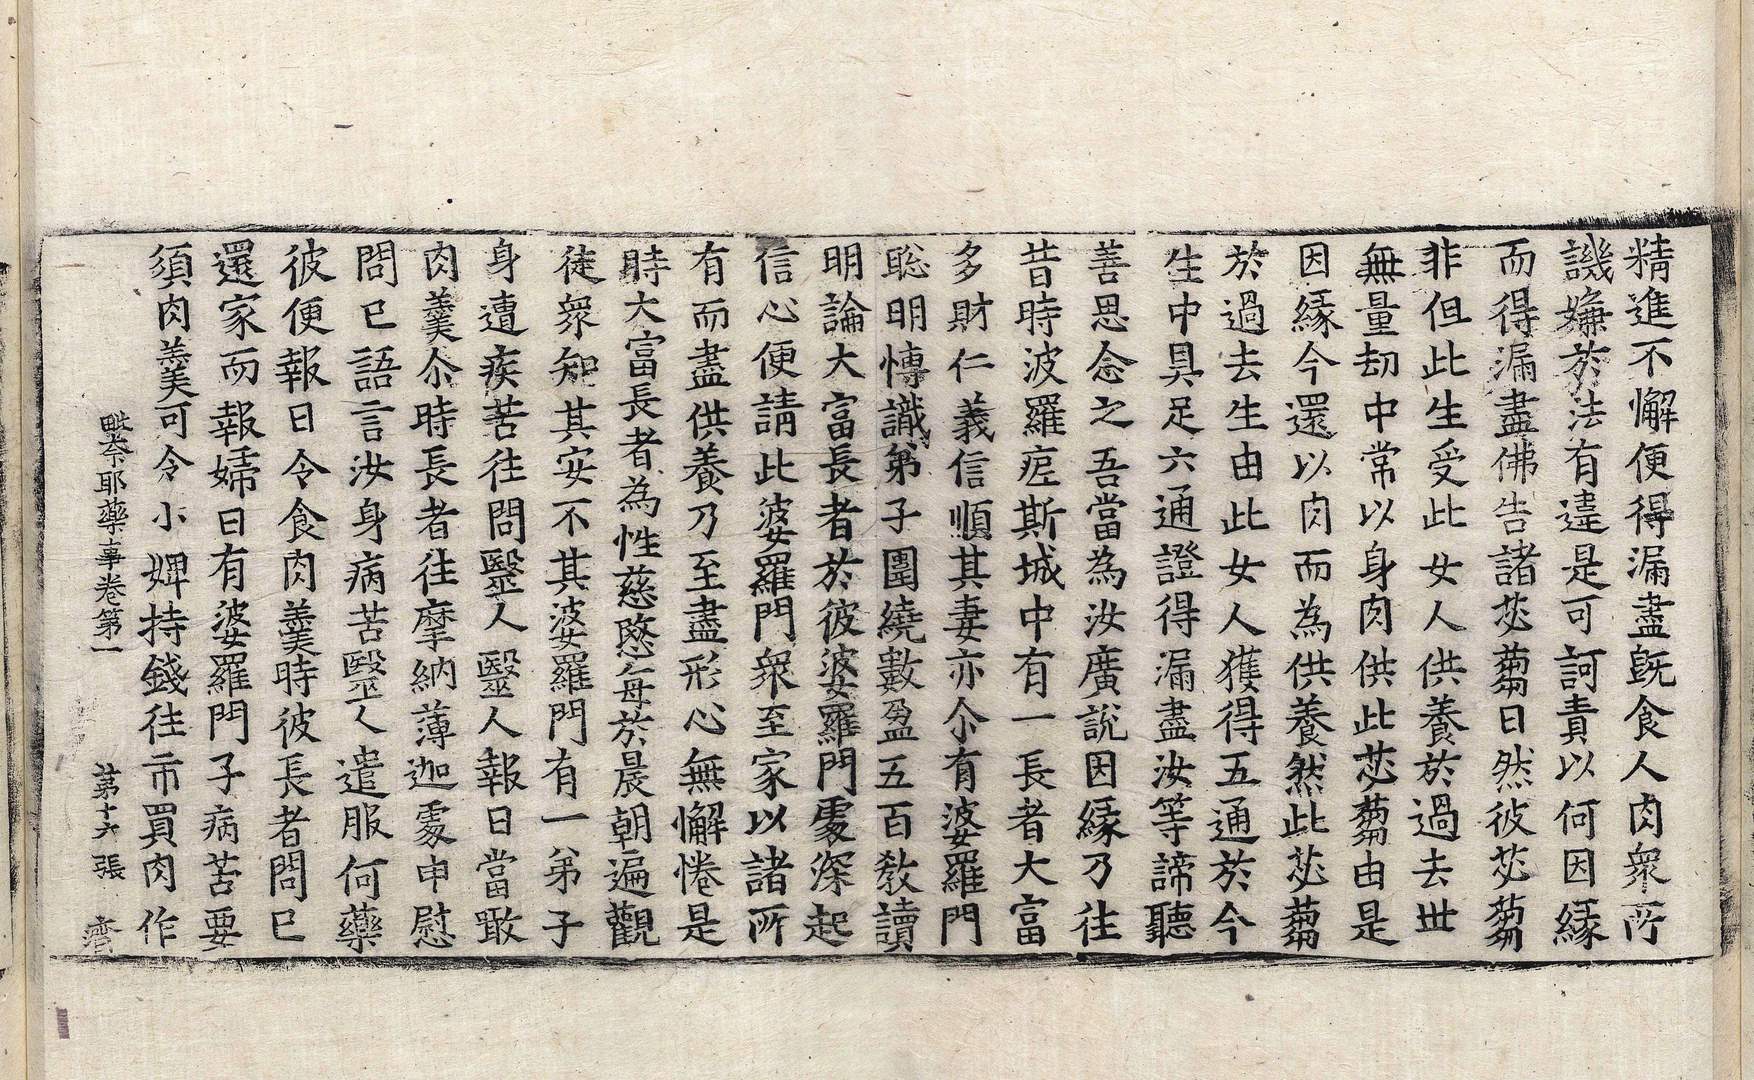 精進不懈便得漏盡旣食人肉衆所
譏嫌於法有違是可訶責以何因緣
而得漏盡佛告諸苾蒭曰然彼苾蒭
非但此生受此女人供養於過去世
無量劫中常以身肉供此苾蒭由是
因緣今還以肉而為供養然此苾蒭
於過去生由此女人獲得五通於今
生中具足六通證得漏盡汝等諦聽
善思念之吾當為汝廣說因緣乃往
昔時波羅痆斯城中有一長者大富
多財仁義信順其妻亦尒有婆羅門
聡明愽識第子圍繞數盈五百教讀
明論大富長者於彼婆羅門處深起
信心便請此婆羅門衆至家以諸所
有而盡供養乃至盡形心無懈惓是
時大富長者為性慈愍每於晨朝遍觀
徒衆知其安不其婆羅門有一弟子
身遭疾苦往問毉人毉人報曰當噉
肉羹尒時長者往摩納薄迦處申慰
問已語言汝身病苦毉人遣服何藥
彼便報曰令食肉羹時彼長者問已
還家而報婦曰有婆羅門子病苦要
須肉羹可令小婢持錢往市買肉作
毗奈耶藥事卷第一 第十六張 濟